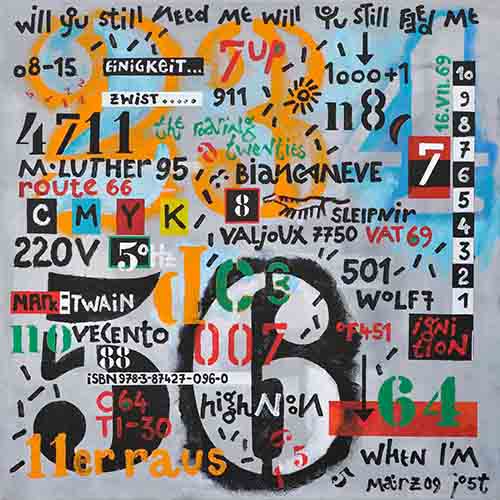 will you still need me will you still feed me
08-15
EiNiGKEiT...
7UP
1000+1
16.VII.69
ZWiST.....
911
n8
4711
the roaring
twenties
M·LUTHER 95
BiANCANEVE
7
route 66
C M Y K
8
SLEIPNIR
VALJOUX 7750 VAT 69
220V
50Hz
501
10
9
8
7
6
5
4
3
2
1
234
d
C3
WOLF7
MARK:TWAiN
noVECENTO
007
°F451
iGNi
tiON
88
56
iSBN 978-3-87427-096-0
C64
TI-30
highNooN
64
11er raus
WHEN I'M
März 09 jost